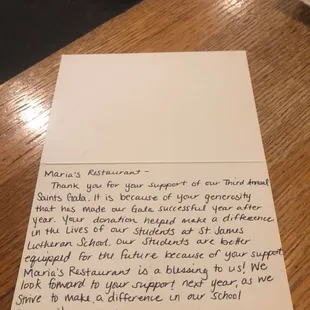 Maria's Restaurant -
Thank you for your support of our Third Annual
Saints Gala. It is because of your generosity
that has made our Gala successful year after
year. Your donation helped make a difference
in the lives of our students at St. James
Lutheran School. Our students are better
equipped for the future because of your support.
Maria's Restaurant is a blessing to us! We
look forward to your support next year, as we
strive to make a difference in our school